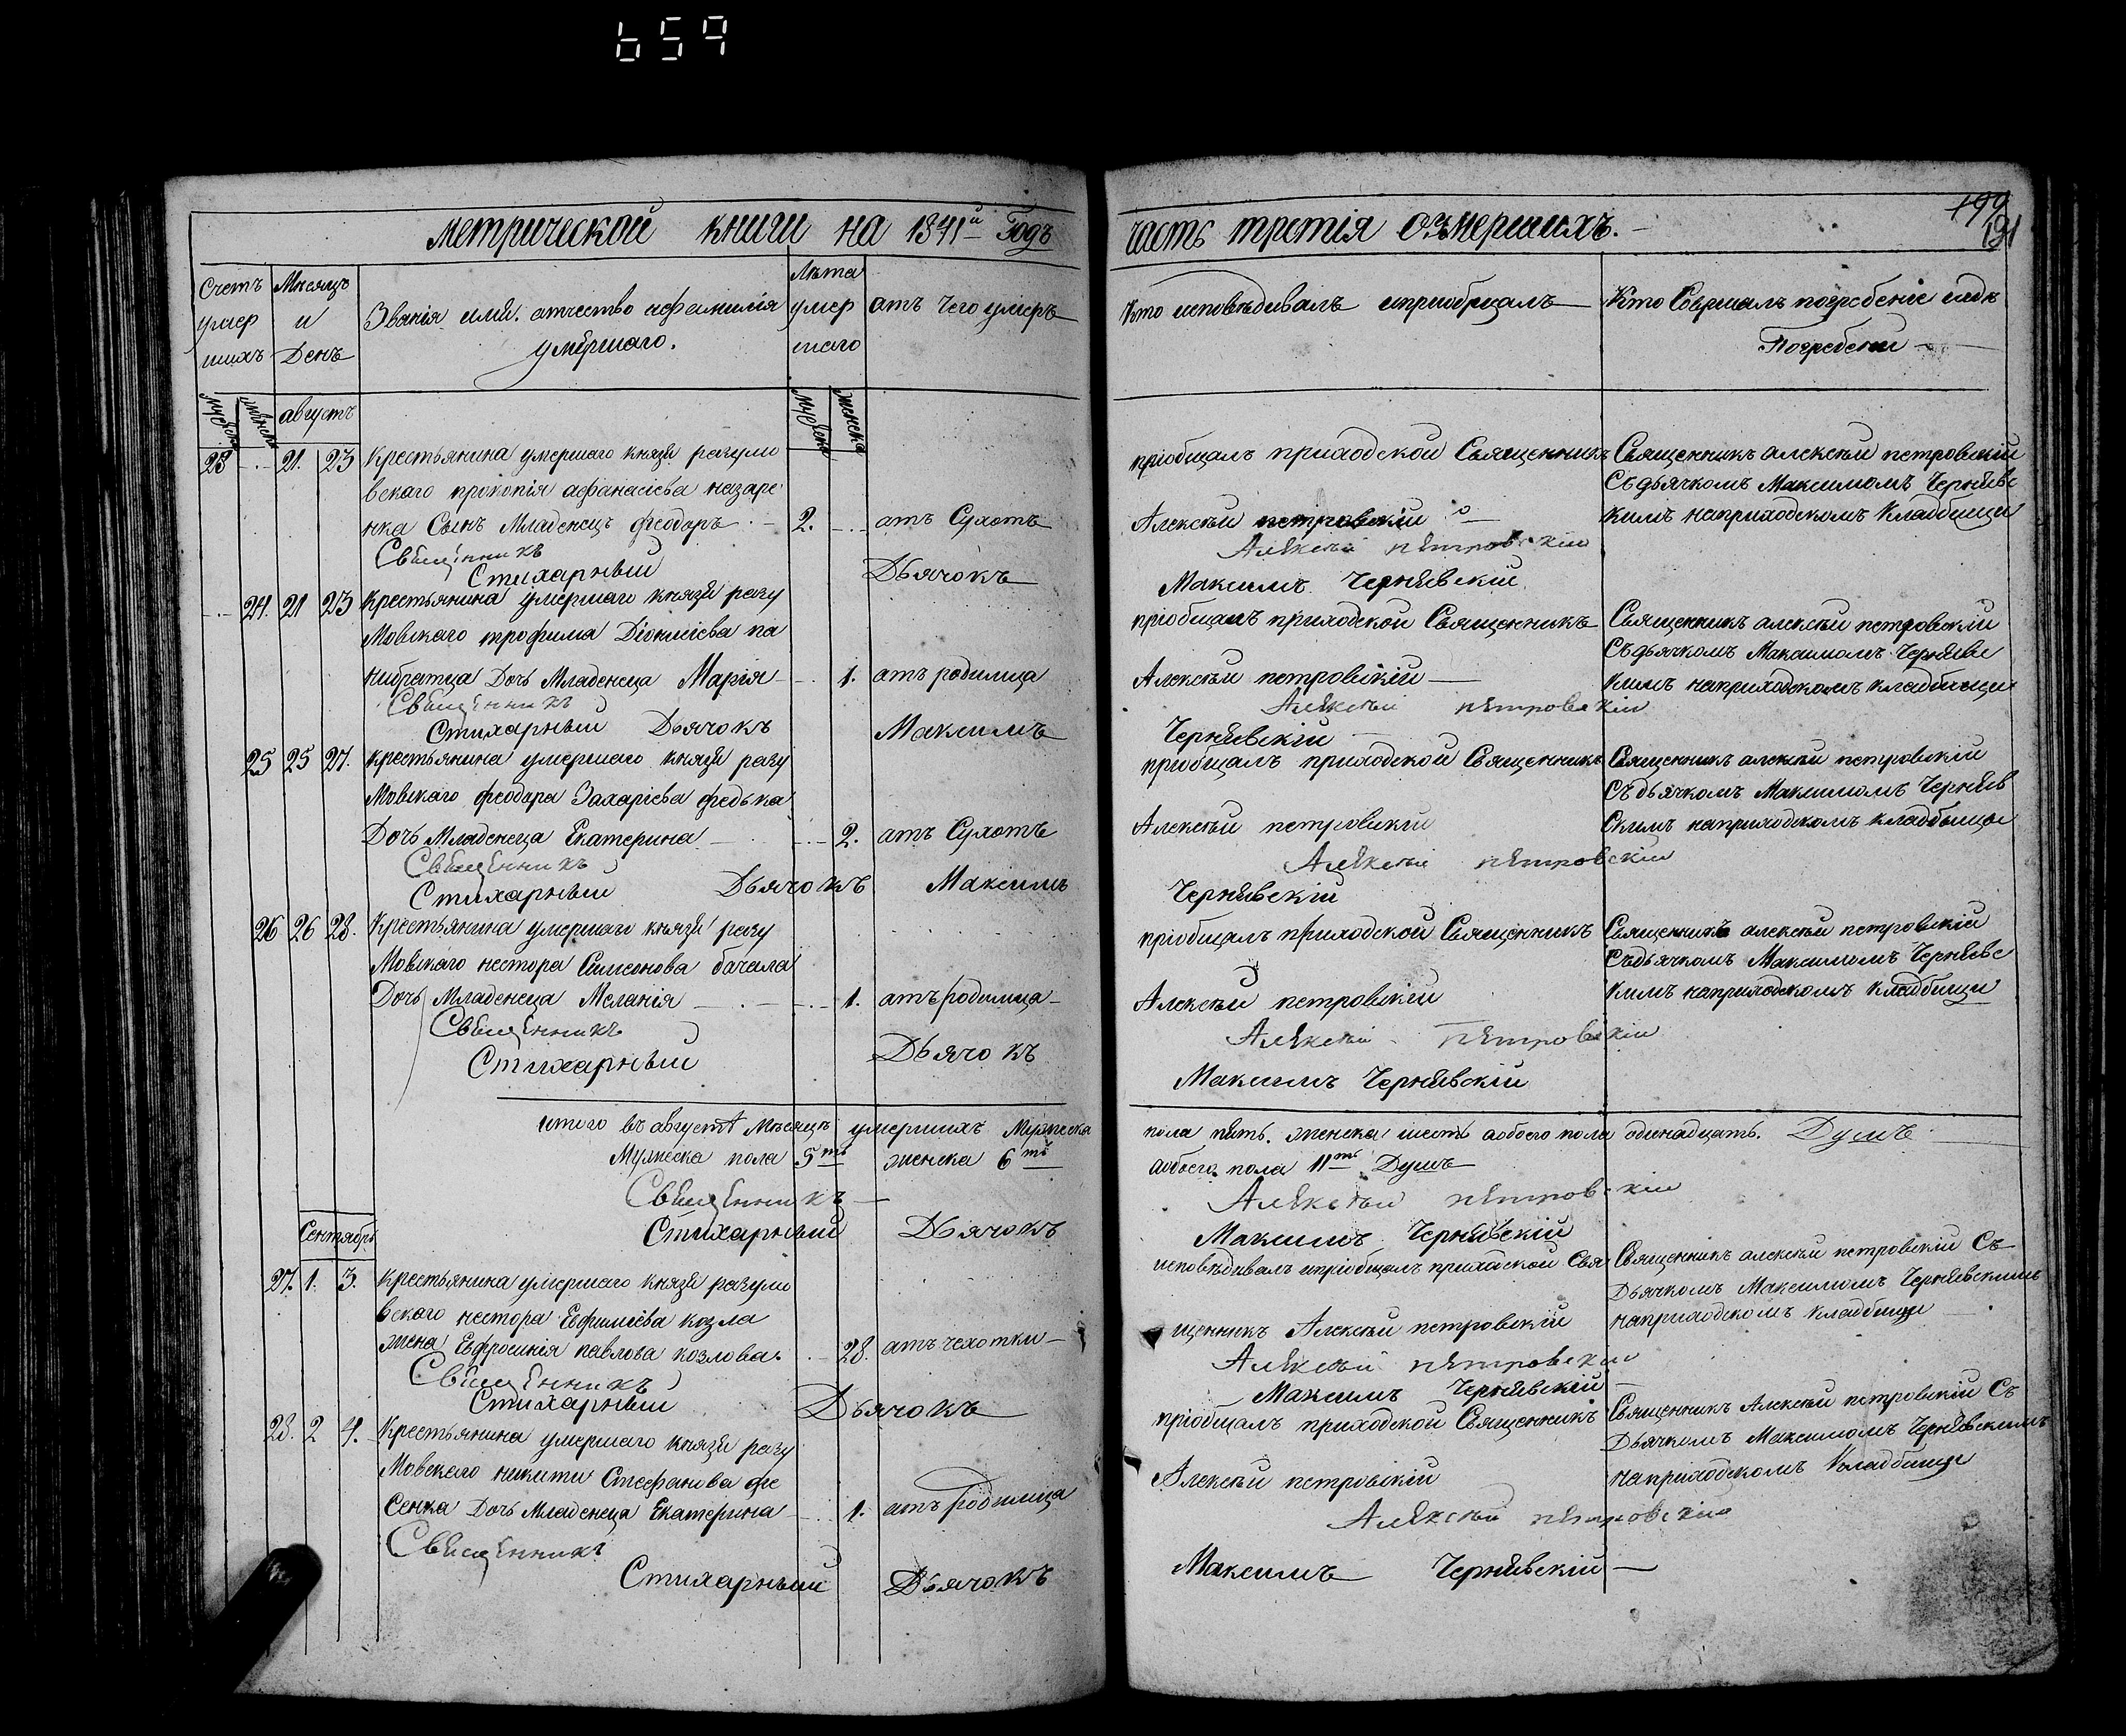 659
метрической книги на 1841й Годъ
часть третія оумершихъ.
199
191
Счетъ умер шихъ
Мѣсяцъ и День
Званія имя. отчество ифамилія
умершаго.
Лѣта умер шаго
атъ Чего умеръ
Кто исповѣдивалъ иприобщалъ
Кто Совершалъ погребеніе игдѣ
Погребени
мужеска
женска
августъ
мужеска
женска
23 21. 23 Крестьянина умершаго князя разумо
вскаго прокопія афанасіева назаре
нка Сынъ Младенецъ феодоръ 2. атъ Сухотъ
Священникъ
Стихарный Дьячокъ
пріобщалъ приходской Священникъ
Алексѣй петровскій
Алексѣй петровскій
Максимъ Чернявскій
Священникъ алексѣй петровскій
Съдьячкомъ Максимомъ Чернявс
кимъ наприходскомъ Кладбищи
24. 21 23 Крестьянина умершаго князя разу
Мовскаго трофима Діонисіева па
нибратца Дочь Младенеца Марія 1. атъ родимца
Священникъ
Стихарный Дьячокъ Максимъ
пріобщалъ приходской Священникъ
Алексѣй петровскій
Алексѣй петровскій
Чернявскій
Священникъ алексѣй петровскій
Съдьячкомъ Максимомъ Чернявс
кимъ наприходскомъ кладбищи
25 25 27. Крестьянина умершаго князя разу
Мовскаго феодора Захаріева федька
Дочь Младенеца Екатерина 2. атъ Сухотъ
Священникъ
Стихарный Дьячокъ Максимъ
пріобщалъ приходской Священникъ
Алексѣй петровскій
Алексѣй петровскій
Чернявскій
Священникъ алексѣй петровскій
Съдьячкомъ Максимомъ Черняв
Скимъ наприходскомъ кладбищи
26 26 28. Крестьянина умершаго князя разу
Мовскаго нестора Симеонова бачала
Дочь Младенеца Меланія 1. атъ родимца
Священникъ
Стихарный Дьячокъ
пріобщалъ приходской Священникъ
Алексѣй петровскій
Алексѣй петровскій
Максимъ Чернявскій
Священникъ алексѣй петровскій
Съдьячкомъ Максимомъ Чернявс
кимъ наприходскомъ кладбищи
итого въ августѣ Мѣсяцѣ умершихъ Мужеска
Мужеска пола 5ть женска 6ть
Священникъ
Стихарный Дьячокъ
пола пять. женска шесть аобоего пола одинадцать. Душъ
аобоего пола 11ть Душъ
Алексѣй петровскій
Максимъ Чернявскій
Сентябрь
27. 1. 3. Крестьянина умершаго князя разумо
вскаго нестора Ефиміева козла
жена Ефросинія павлова козлова. 28. атъ чехотки
Священникъ
Стихарный Дьячокъ
исповѣдивалъ ипріобщалъ приходской Свя
щенникъ Алексѣй петровскій
Алексѣй петровскій
Максимъ Чернявскій
Священникъ алексѣй петровскій Съ
Дьячкомъ Максимомъ Чернявскимъ
наприходскомъ кладбище
28. 2 4. Крестьянина умершаго князя разу
Мовскаго никити Стефанова фе
Сенка Дочь Младенеца Екатерина 1. атъ родимца
Священникъ
Стихарный Дьячокъ
пріобщалъ приходской Священникъ
Алексѣй петровскій
Алексѣй петровскій
Максимъ Чернявскій
Священникъ Алексѣй петровскій Съ
Дьячкомъ Максимомъ Чернявскимъ
наприходскомъ Кладбище